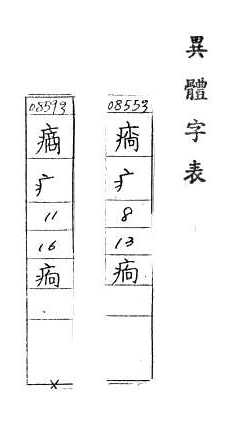 異體字表
08553
疒
8
13
08593
疒
11
16